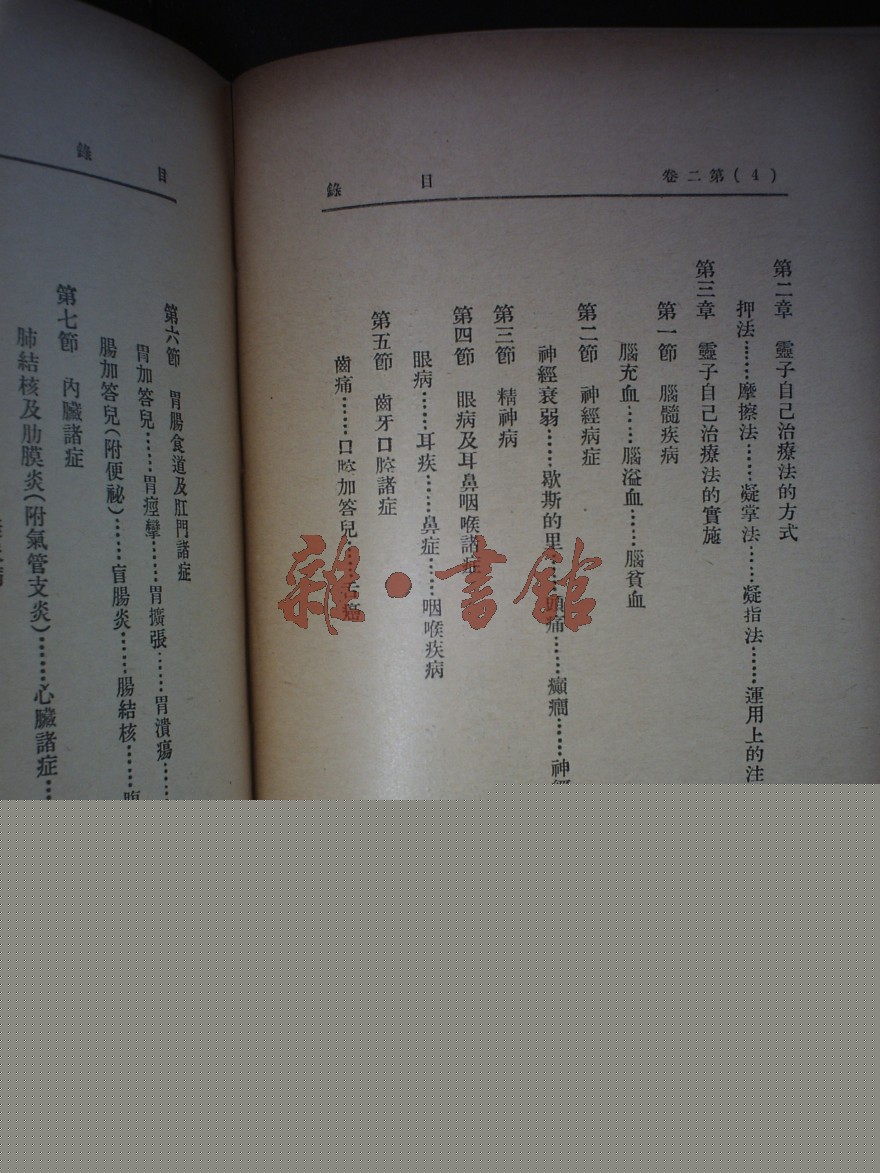 第二卷 (4)
目錄
第二章 靈子自己治療法的方式
押法……摩擦法……凝掌法……凝指法……運用上的注
第三章 靈子自己治療法的實施
第一節 腦髓疾病
腦充血……腦溢血……腦貧血
第二節 神經病症
神經衰弱……歇斯的里……頭痛……癲癇……神經
第三節 精神病
第四節 眼病及耳鼻咽喉諸症
眼病……耳疾……鼻症……咽喉疾病
第五節 齒牙口腔諸症
齒痛……口腔加答兒……舌癌
目錄
第六節 胃腸食道及肛門諸症
胃加答兒……胃痙攣……胃擴張……胃潰瘍……
腸加答兒(附便祕)……盲腸炎……腸結核……腹
第七節 內臟諸症
肺結核及肋膜炎(附氣管支炎)……心臟諸症…
雜·書館